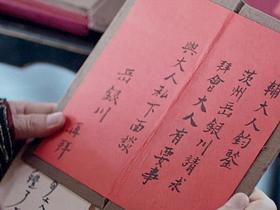 大人鈞鑒
州岳銀川請求
拜會大人有要事
與大人私下面談
岳銀川
再拜